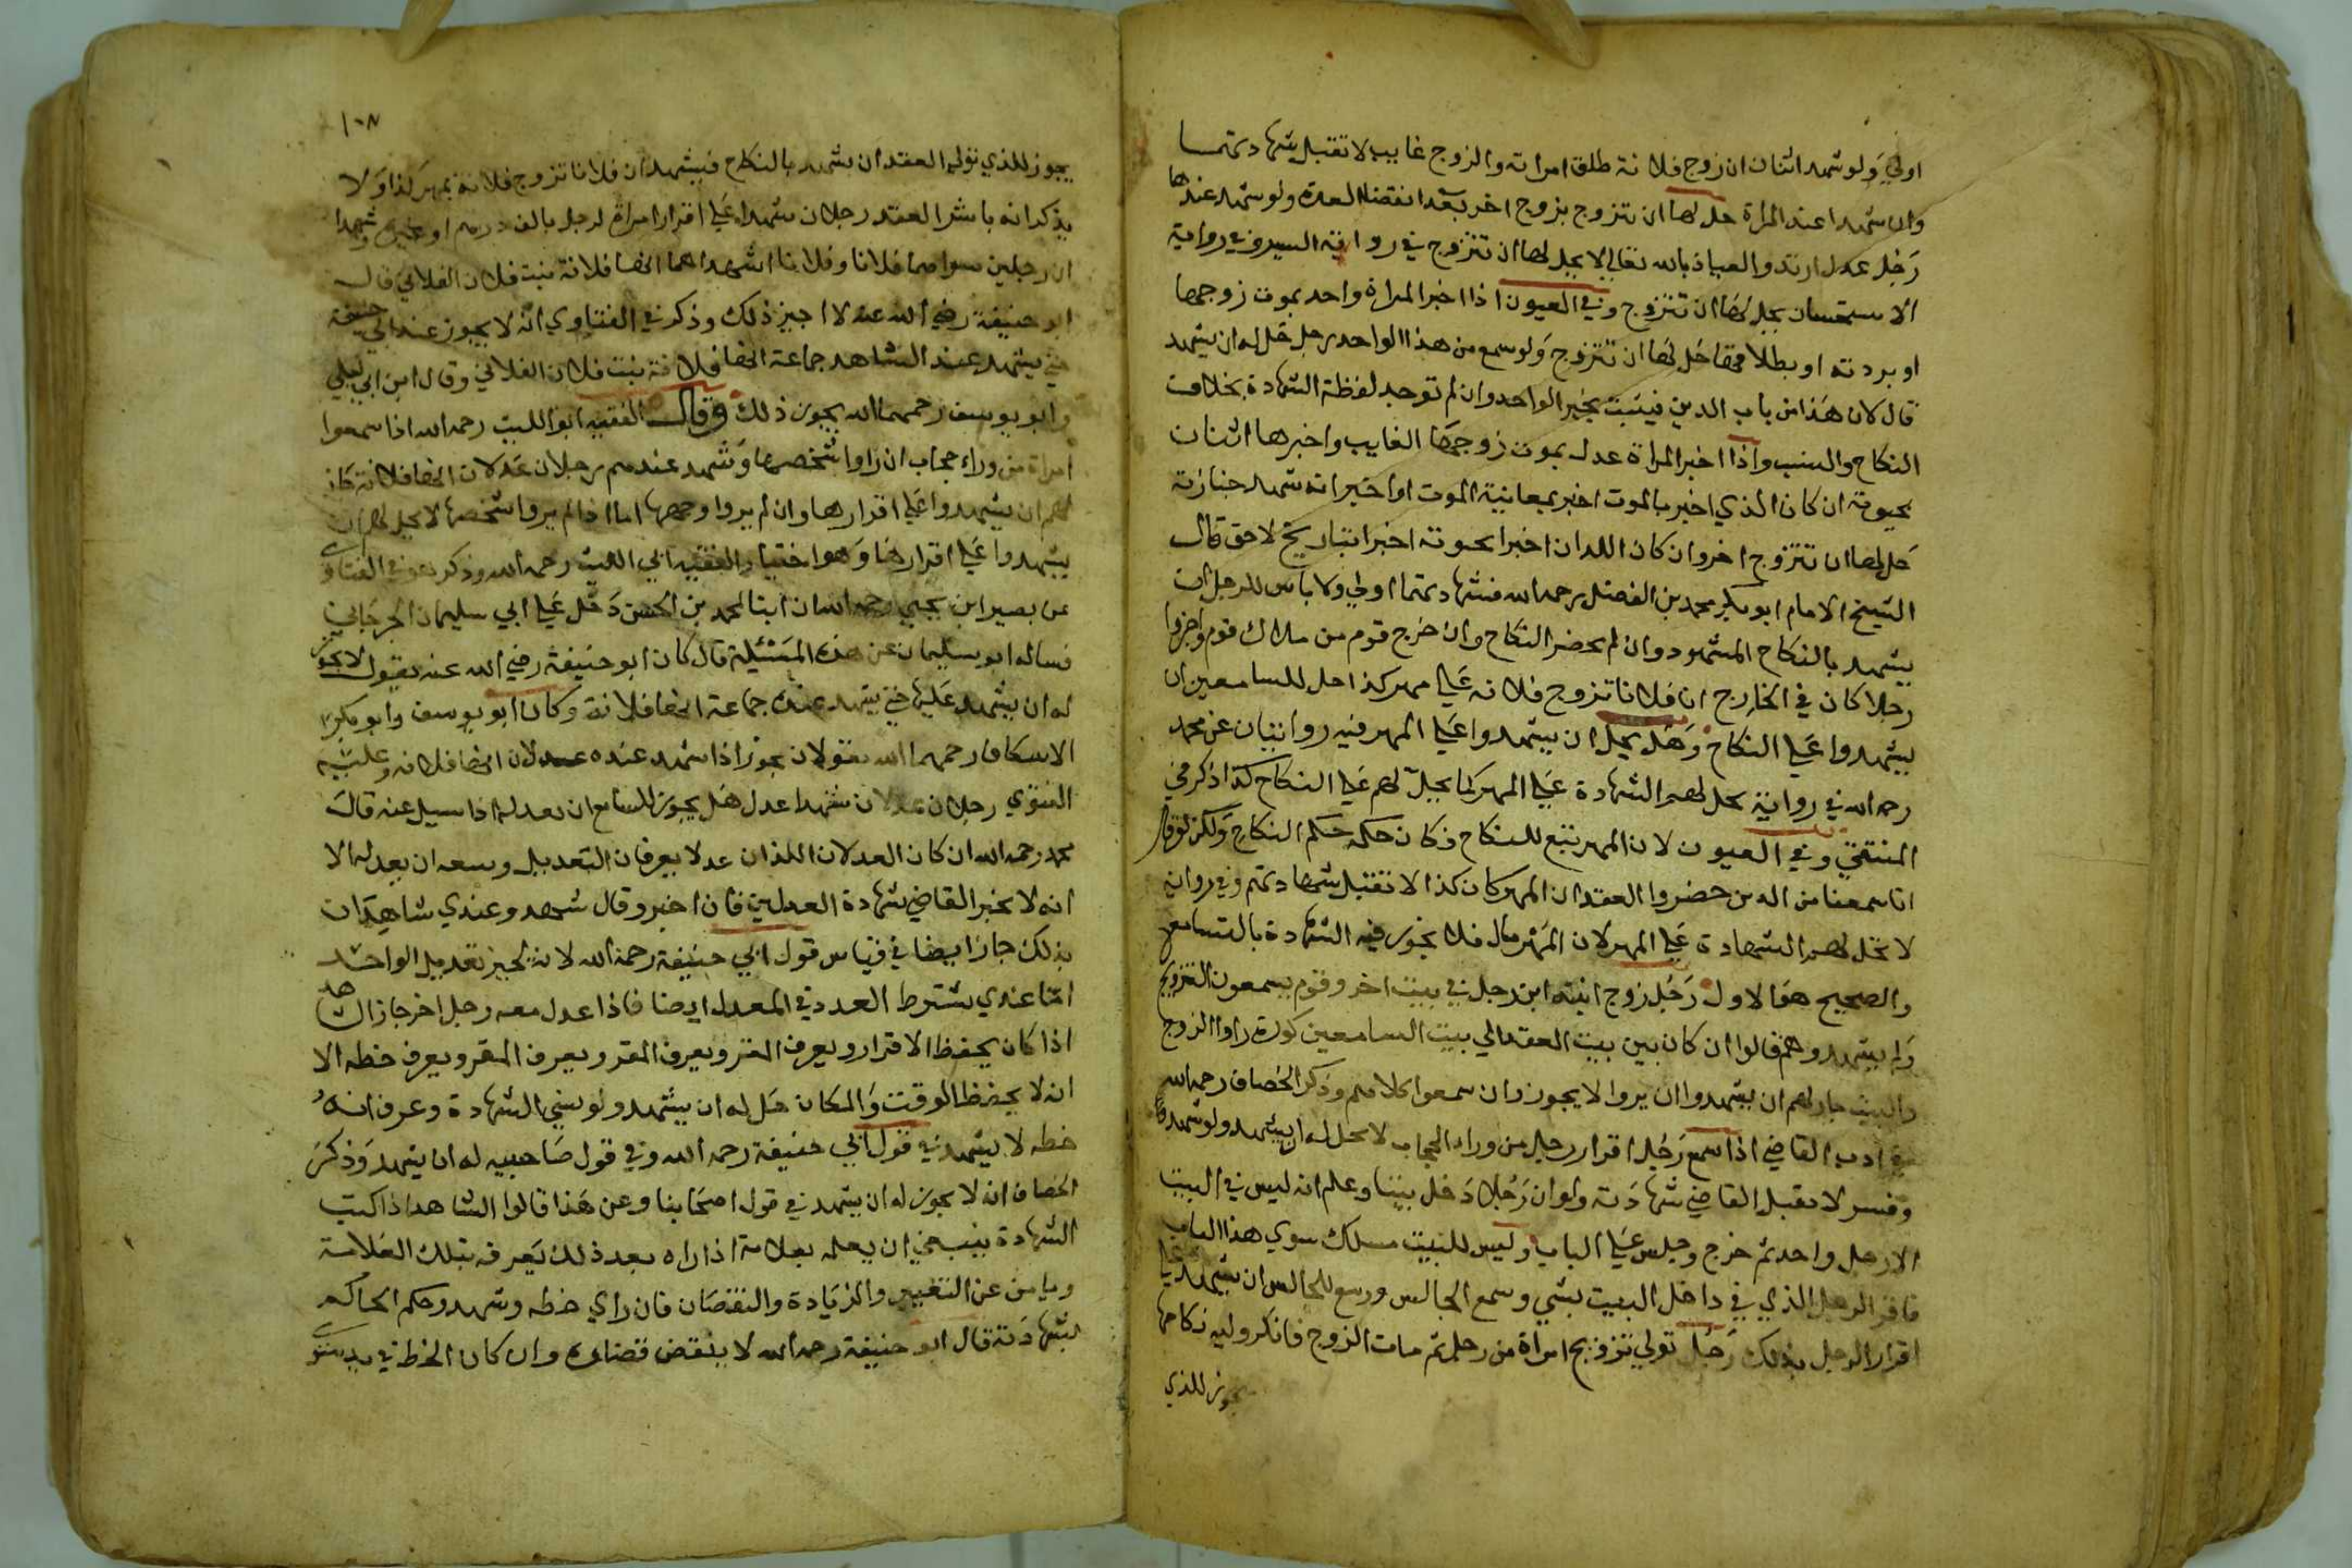 اولي ولو شهد اثنان ان زوج فلانة طلق امراته والزوج غايب لا تقبل شهادتهما
وان شهدا عند المراة حل لها ان تتزوج بزوج اخر بعد انقضاء العدة ولو شهد عندها
رجل عدل ارتد والعياذ بالله تعالي لا يحل لها ان تتزوج في رواية السير وفي رواية
الاستحسان يحل لها ان تتزوج وفي العيون اذا اخبر المراة واحد بموت زوجها
او بردته او بطلاقها حل لها ان تتزوج ولو سمع من هذا الواحد رجل حل له ان يشهد
قال لان هذا من باب الدين فيثبت بخبر الواحد وان لم توجد لفظة الشهادة بخلاف
النكاح والنسب واذا اخبر المراة عدل بموت زوجها الغايب واخبرها اثنان
بحيوته ان كان الذي اخبر بالموت اخبر بمعاينة الموت او اخبر انه شهد جنازته
حل لها ان تتزوج اخر وان كان اللذان اخبرا بحيوته اخبرا بتاريخ لاحق قال
الشيخ الامام ابو بكر محمد بن الفضل رحمه الله فشهادتهما اولي ولا باس للرجل ان
يشهد بالنكاح المشهود وان لم يحضر النكاح وان خرج قوم من ملاك قوم واخبروا
رجلا كان في الخارج ان فلانا تزوج فلانة علي مهر كذا حل للسامعين ان
يشهدوا علي النكاح وهل يحل ان يشهدوا علي المهر فيه روايتان عن محمد
رحمه الله في رواية يحل لهم الشهادة علي المهر كما يحل لهم علي النكاح كذا ذكر في
المنتقي وفي العيون لان المهر تبع للنكاح فكان حكمه حكم النكاح ولكن لو قالوا
انا سمعنا من الذين حضروا العقد ان المهر كان كذا لا تقبل شهادتهم وفي رواية
لا تحل لهم الشهادة علي المهر لان المهر مال فلا يجوز فيه الشهادة بالتسامع
والصحيح هو الاول رجل زوج ابنته ابن رجل في بيت اخر وقوم يسمعون التزويج
ولم يشهدوهم قالوا ان كان بين بيت العقد الي بيت السامعين كوة راوا الزوج
والبنت جاز لهم ان يشهدوا ان يروا لا يجوز وان سمعوا كلامهم وذكر الخصاف رحمه الله
في ادب القاضي اذا سمع رجل اقرار رجل من وراء الحجاب لا يحل له ان يشهد ولو شهد
وفسر لا يقبل القاضي شهادته ولو ان رجلا دخل بيتا وعلم انه ليس في البيت
الا رجل واحد ثم خرج وجلس علي الباب وليس للبيت مسلك سوي هذا الباب
فاقر الرجل الذي في داخل البيت بشي وسمع الجالس وسع للجالس ان يشهد علي
اقرار الرجل بذلك رجل تولي تزويج امراة من رجل ثم مات الزوج فانكر وليه نكاحها
يجوز للذي
١٠٨
يجوز للذي تولي العقد ان يشهد بالنكاح فيشهد ان فلانا تزوج فلانة بمهر كذا ولا
يذكر انه باشر العقد رجلان شهدا علي اقرار امراة لرجل بالف درهم او وشهدا
ان رجلين سواهما فلانا وفلانا اشهداهما انها فلانة بنت فلان الفلاني قال
ابو حنيفة رضي الله عنه لا اجيز ذلك وذكر في الفتاوي انه لا يجوز عند ابي حنيفة
حتي يشهد عند الشاهد جماعة انها فلانة بنت فلان الفلاني وقال ابن ابي ليلي
وابو يوسف رحمهما الله يجوز ذلك وقال الفقيه ابو الليث رحمه الله اذا سمعوا
امراة من وراء حجاب ان راوا شخصها وشهد عندهم رجلان عدلان انها فلانة جاز
لهم ان يشهدوا علي اقرارها وان لم يروا وجهها اما اذا لم يروا شخصها لا يحل لهم ان
يشهدوا علي اقرارها وهو اختيار الفقيه ابي الليث رحمه الله وذكر هو في الفتاوي
عن نصير ابن يحيي رحمه الله ان ابنا لمحمد بن الحسن دخل علي ابي سليمان الجرجاني
فساله ابو سليمان عن هذه المسئلة قال كان ابو حنيفة رضي الله عنه يقول لا يجوز
له ان يشهد عليها حتي يشهد عنده جماعة انها فلانة وكان ابو يوسف وابو بكر
الاسكاف رحمهما الله يقولان يجوز اذا شهد عنده عدلان انها فلانة وعليه
الفتوي رجلان عدلان شهدا عدل هل يجوز للسامع ان يعدله اذا سيل عنه قال
محمد رحمه الله ان كان العدلان اللذان عدلا يعرفان التعديل وسعه ان يعدله الا
انه لا يخبر القاضي بشهادة العدلين فان اخبر وقال شهد وعندي شاهدان
بذلك جاز ايضا في قياس قول ابي حنيفة رحمه الله لانه يجيز تعديل الواحد
اما عندي يشترط العدد في المعدل ايضا فاذا عدل معه رجل اخر جاز الشاهد
اذا كان يحفظ الاقرار ويعرف المقر ويعرف المقر ويعرف المقر ويعرف خطه الا
ان لا يحفظ الوقت والمكان هل له ان يشهد ولو نسي الشهادة وعرف انه
خطه لا يشهد في قول ابي حنيفة رحمه الله وفي قول صاحبيه له ان يشهد وذكر
الخصاف انه لا يجوز له ان يشهد في قول اصحابنا وعن هذا قالوا الشاهد اذا كتب
الشهادة ينبغي ان يعلمه بعلامة اذا راه بعد ذلك يعرفه بتلك العلامة
ويامن عن التغيير والزيادة والنقصان فان راي خطه وشهد وحكم الحاكم
بشهادته قال ابو حنيفة رحمه الله لا ينقض قضاؤه وان كان الخط في يد